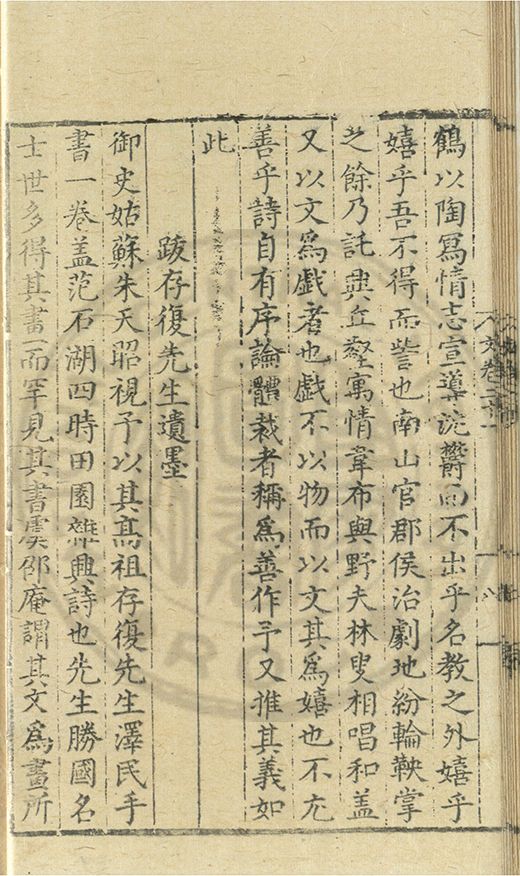 鶴以陶冩情志宣導沈鬱而不出乎名教之外嬉乎
嬉乎吾不得而訾也南山官郡侯治劇地紛輪鞅掌
之餘乃託興丘壑寓情韋布與野夫林叟相唱和盖
又以文爲戯者也戯不以物而以文其爲嬉也不尤
善乎詩自有序論體裁者稱爲善作予又推其義如
此
跋存復先生遺墨
御史姑蘇朱天昭視予以其髙祖存復先生澤民手
書一卷盖范石湖四時田園雜興詩也先生勝國名
士世多得其畫而罕見其書虞邵庵謂其文爲畫所
文卷二十一
八